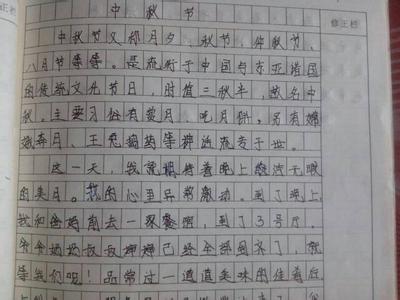 中秋节
修正栏
中秋节又称月夕、秋节、仲秋节、
八月节等等。是流行于中国与东亚诸国
的传统文化节日,时值三秋半,故名中
秋。主要习俗有赏月、吃月饼,另有嫦
娥奔月、玉兔捣药等神话流传于世。
这一天,我就期待着晚上皎洁无暇
的美月。我的心里异常激动。到了晚上
我和爸妈到去一家餐馆,到了3号厅。
爷爷奶奶叔叔婶婶已经全部到齐了,就
等我们呢!品常过一道道美味的佳肴后